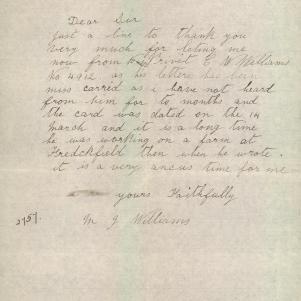 Dear Sir
Just a line to thank you
very much for leting me
now from Privet E W Williams
No 4912 as his letters has ben
miss carried as i have not heard
from him for to months and
the card was dated on the 14
Marsh and it is a long time
he was working on a farm at
Fredekfield then when he wrote.
it is a very ancus time for me
yours Faithfully
2757. M J Williams